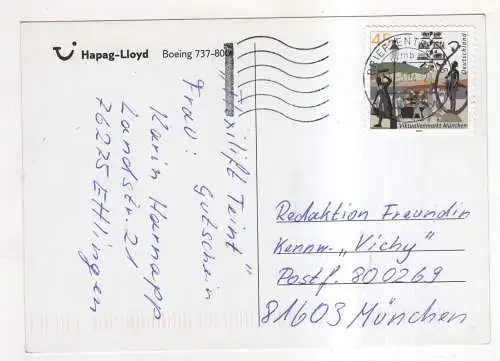 Hapag-Lloyd Boeing 737-800
"Flexilift Teint"
Gutschein
Frau:
Karin Harnapp
Landstr. 21
76275 Ettlingen
45
Deutschland
BRIEFZENTR
Viktualienmarkt München
Redaktion Freundin
Kennw. „Vichy"
Postf. 800269
81603 München